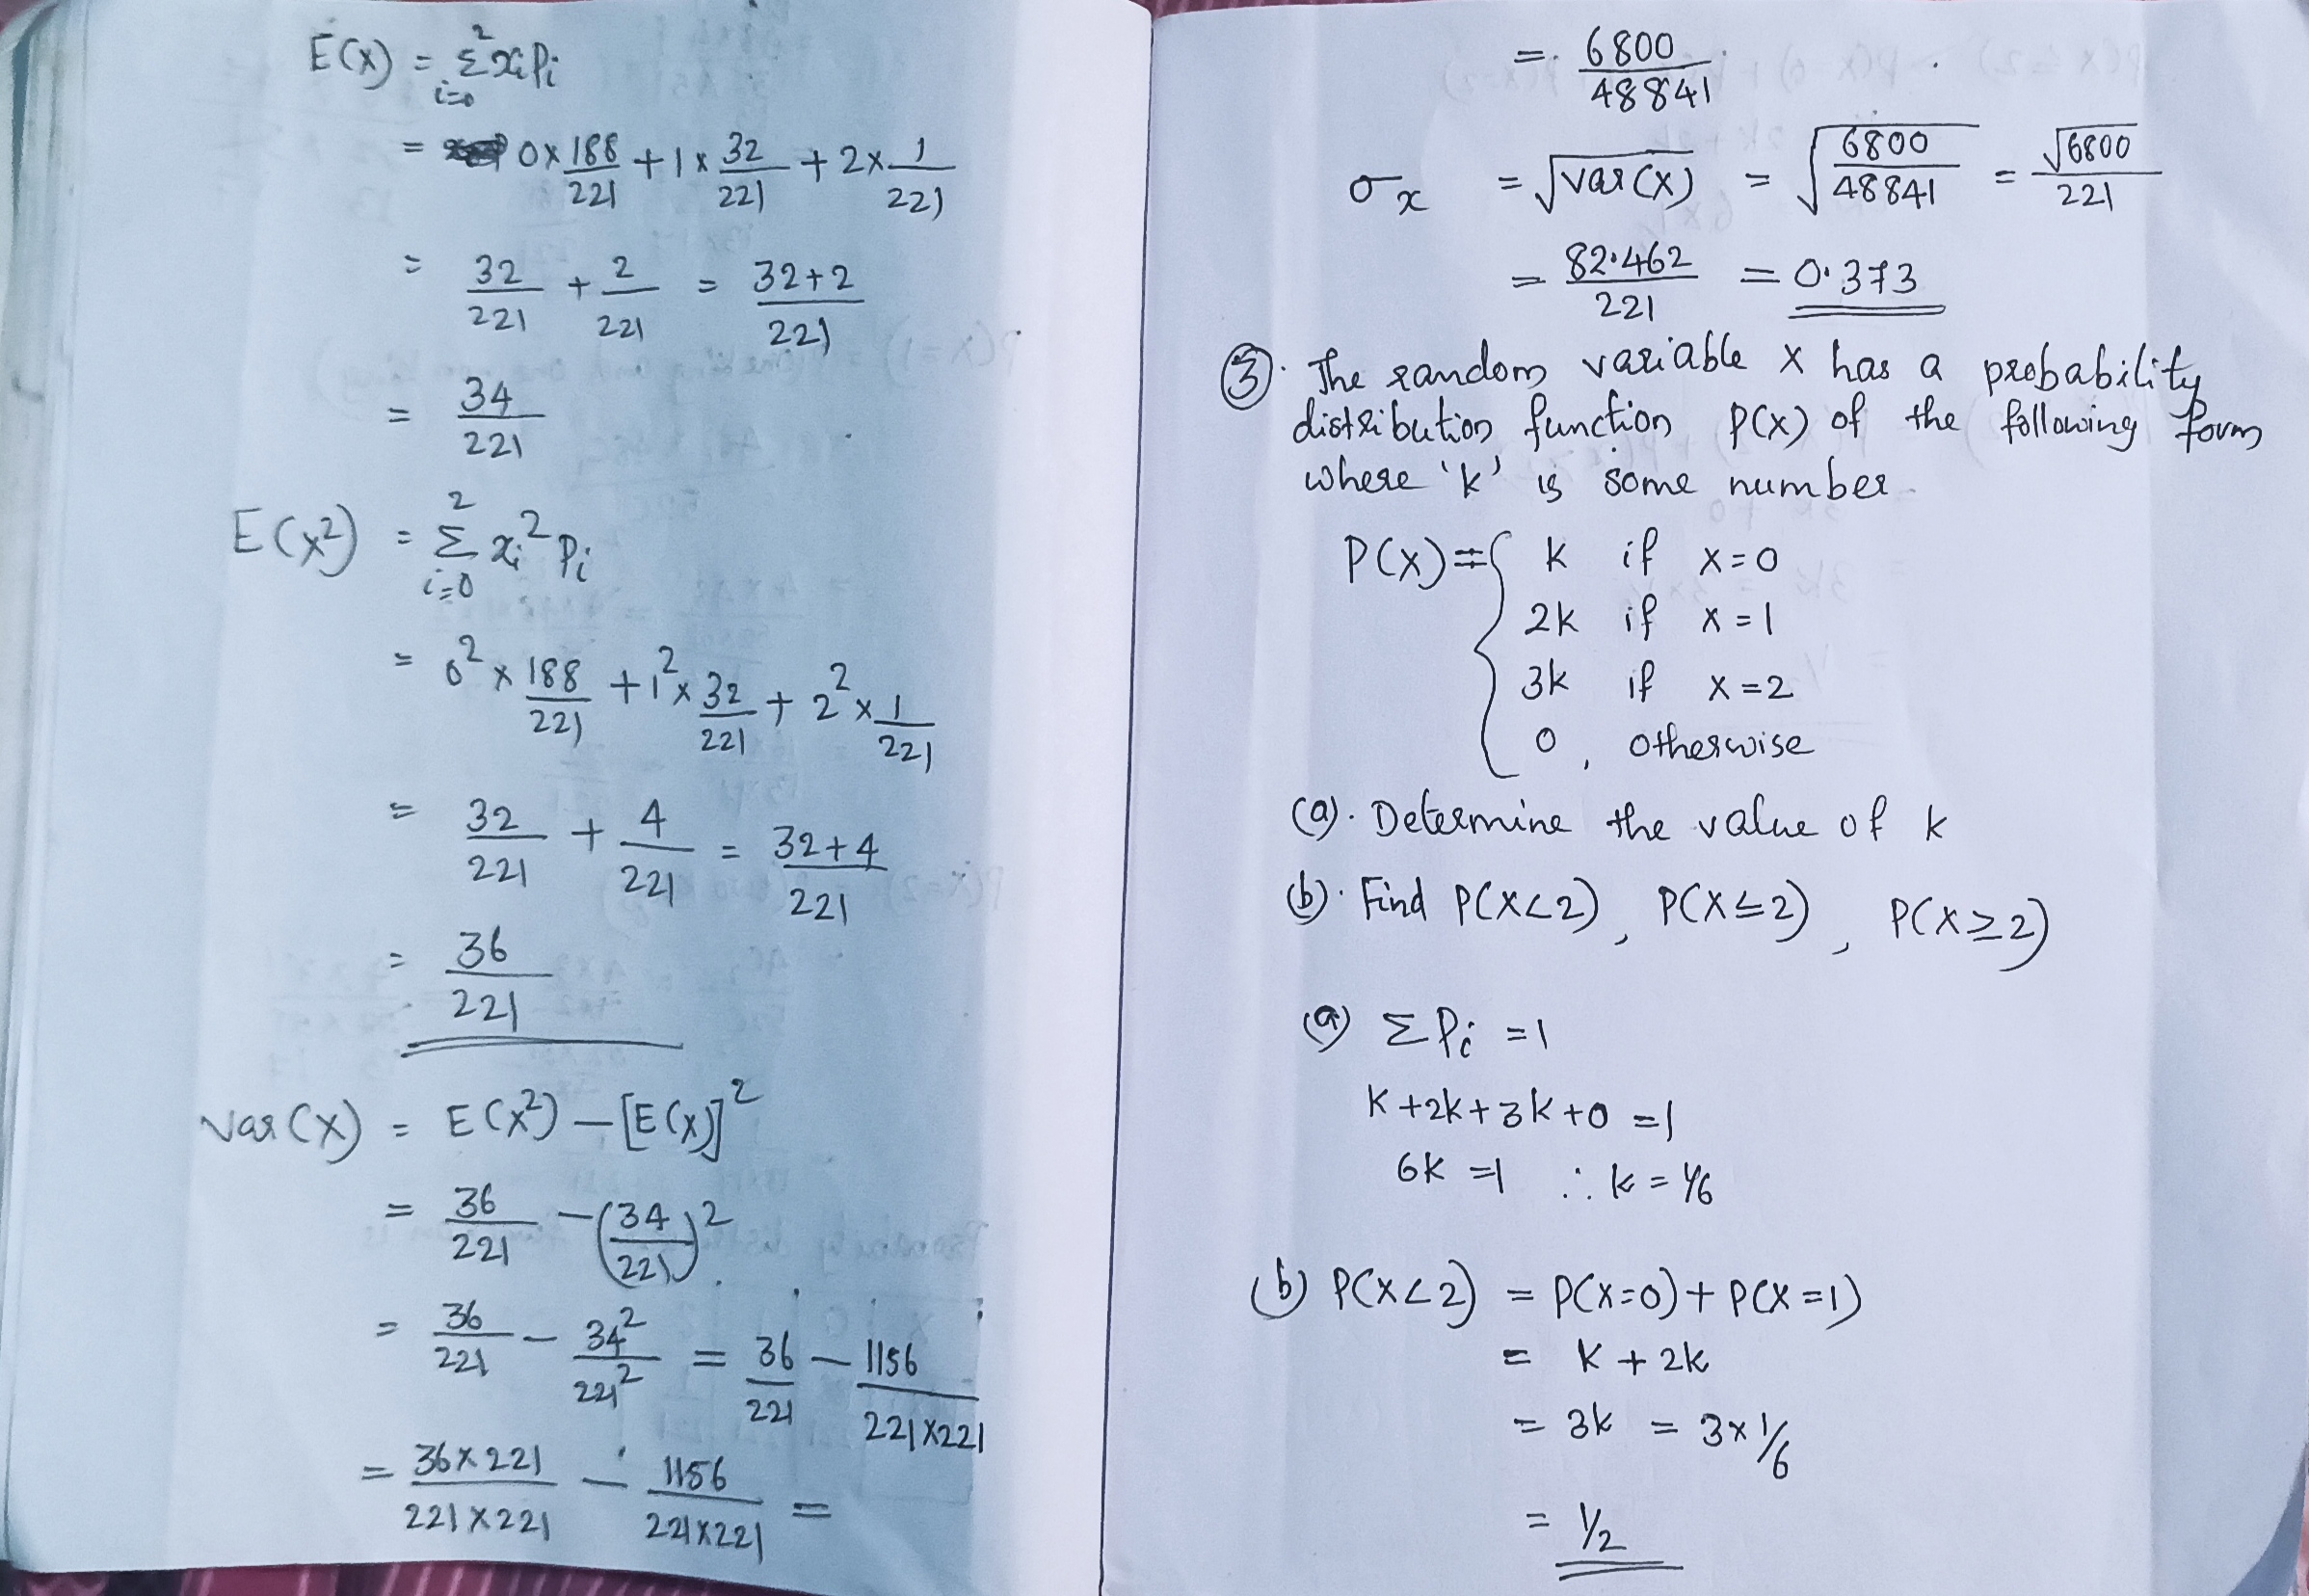 E(X) = Σ_{i=0}^{2} xᵢ Pᵢ
= 0 × 188/221 + 1 × 32/221 + 2 × 1/221
= 32/221 + 2/221 = 32+2/221
= 34/221
E(X²) = Σ_{i=0}^{2} xᵢ² Pᵢ
= 0² × 188/221 + 1² × 32/221 + 2² × 1/221
= 32/221 + 4/221 = 32+4/221
= 36/221
Var(X) = E(X²) – [E(X)]²
= 36/221 – (34/221)²
= 36/221 – 34²/221² = 36/221 – 1156/221×221
= 36×221/221×221 – 1156/221×221 =
= 6800/48841
σₓ = √Var(X) = √(6800/48841) = √6800/221
= 82.462/221 = 0.373
③. The random variable X has a probability
distribution function P(X) of the following form
where 'k' is some number.
P(X) = { k if X=0
2k if X=1
3k if X=2
0, otherwise
(a). Determine the value of k
(b). Find P(X<2), P(X≤2), P(X≥2)
(a) ΣPᵢ = 1
k+2k+3k+0 = 1
6k = 1 ∴ k = 1/6
(b) P(X<2) = P(X=0) + P(X=1)
= k + 2k
= 3k = 3×1/6
= 1/2